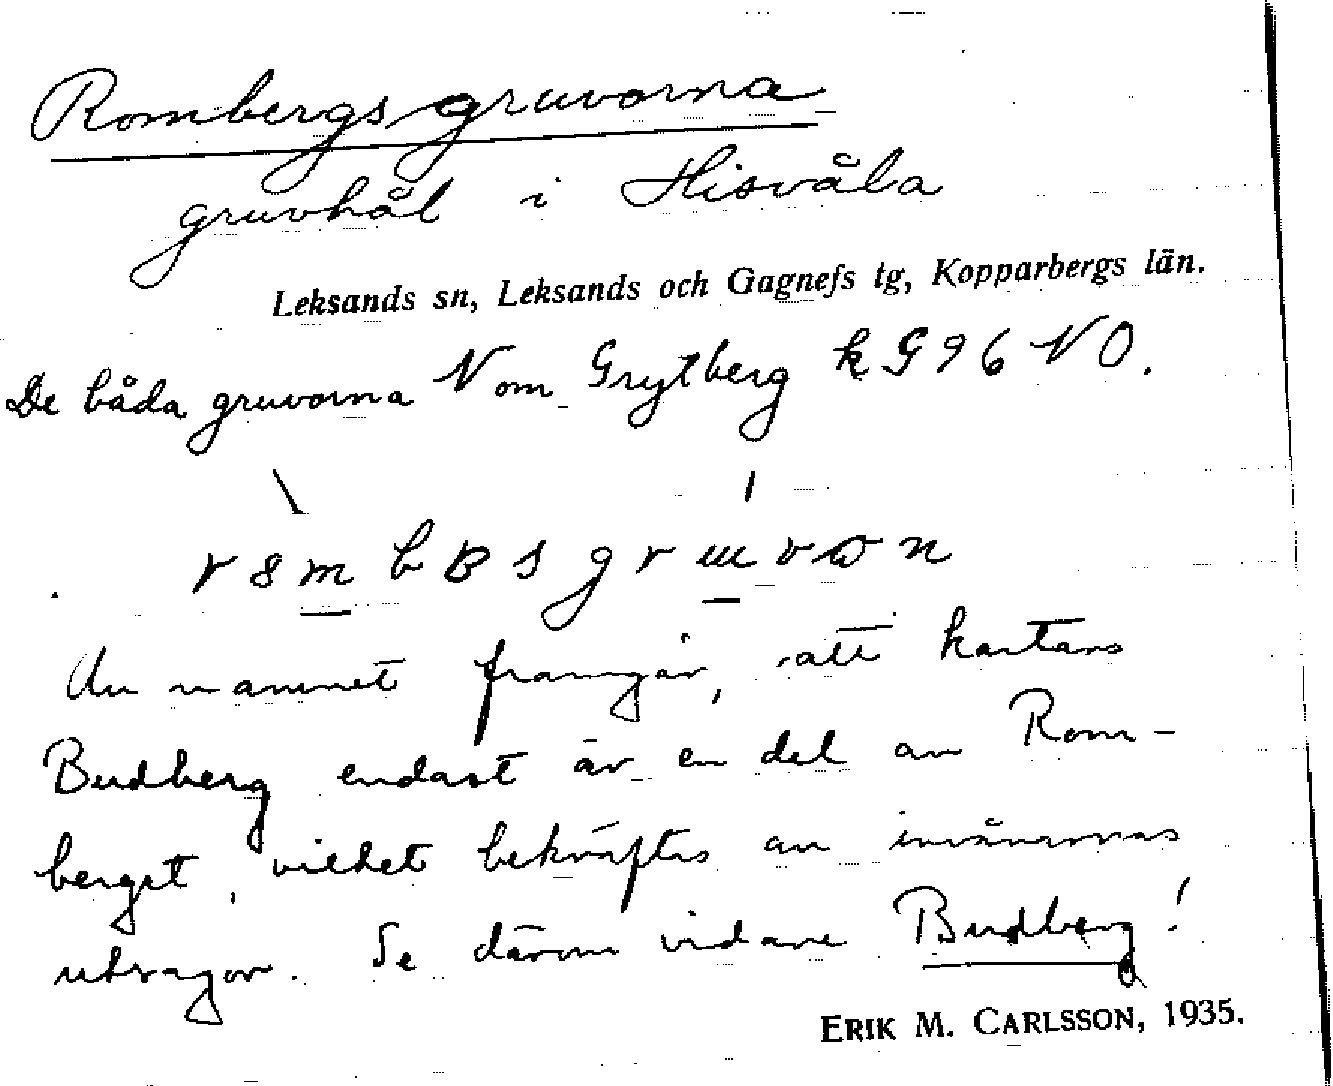 Rombergsgruvorna
gruvhål i Hisvåla
Leksands sn, Leksands och Gagnefs tg, Kopparbergs län.
De båda gruvorna N om Grytberg k G 96 NO.
Av namnet framgår, att kartans
Budberg endast är en del av Rom-
berget, vilket bekräftas av invånarnas
utsagor. Se därom vidare Budberg!
ERIK M. CARLSSON, 1935.